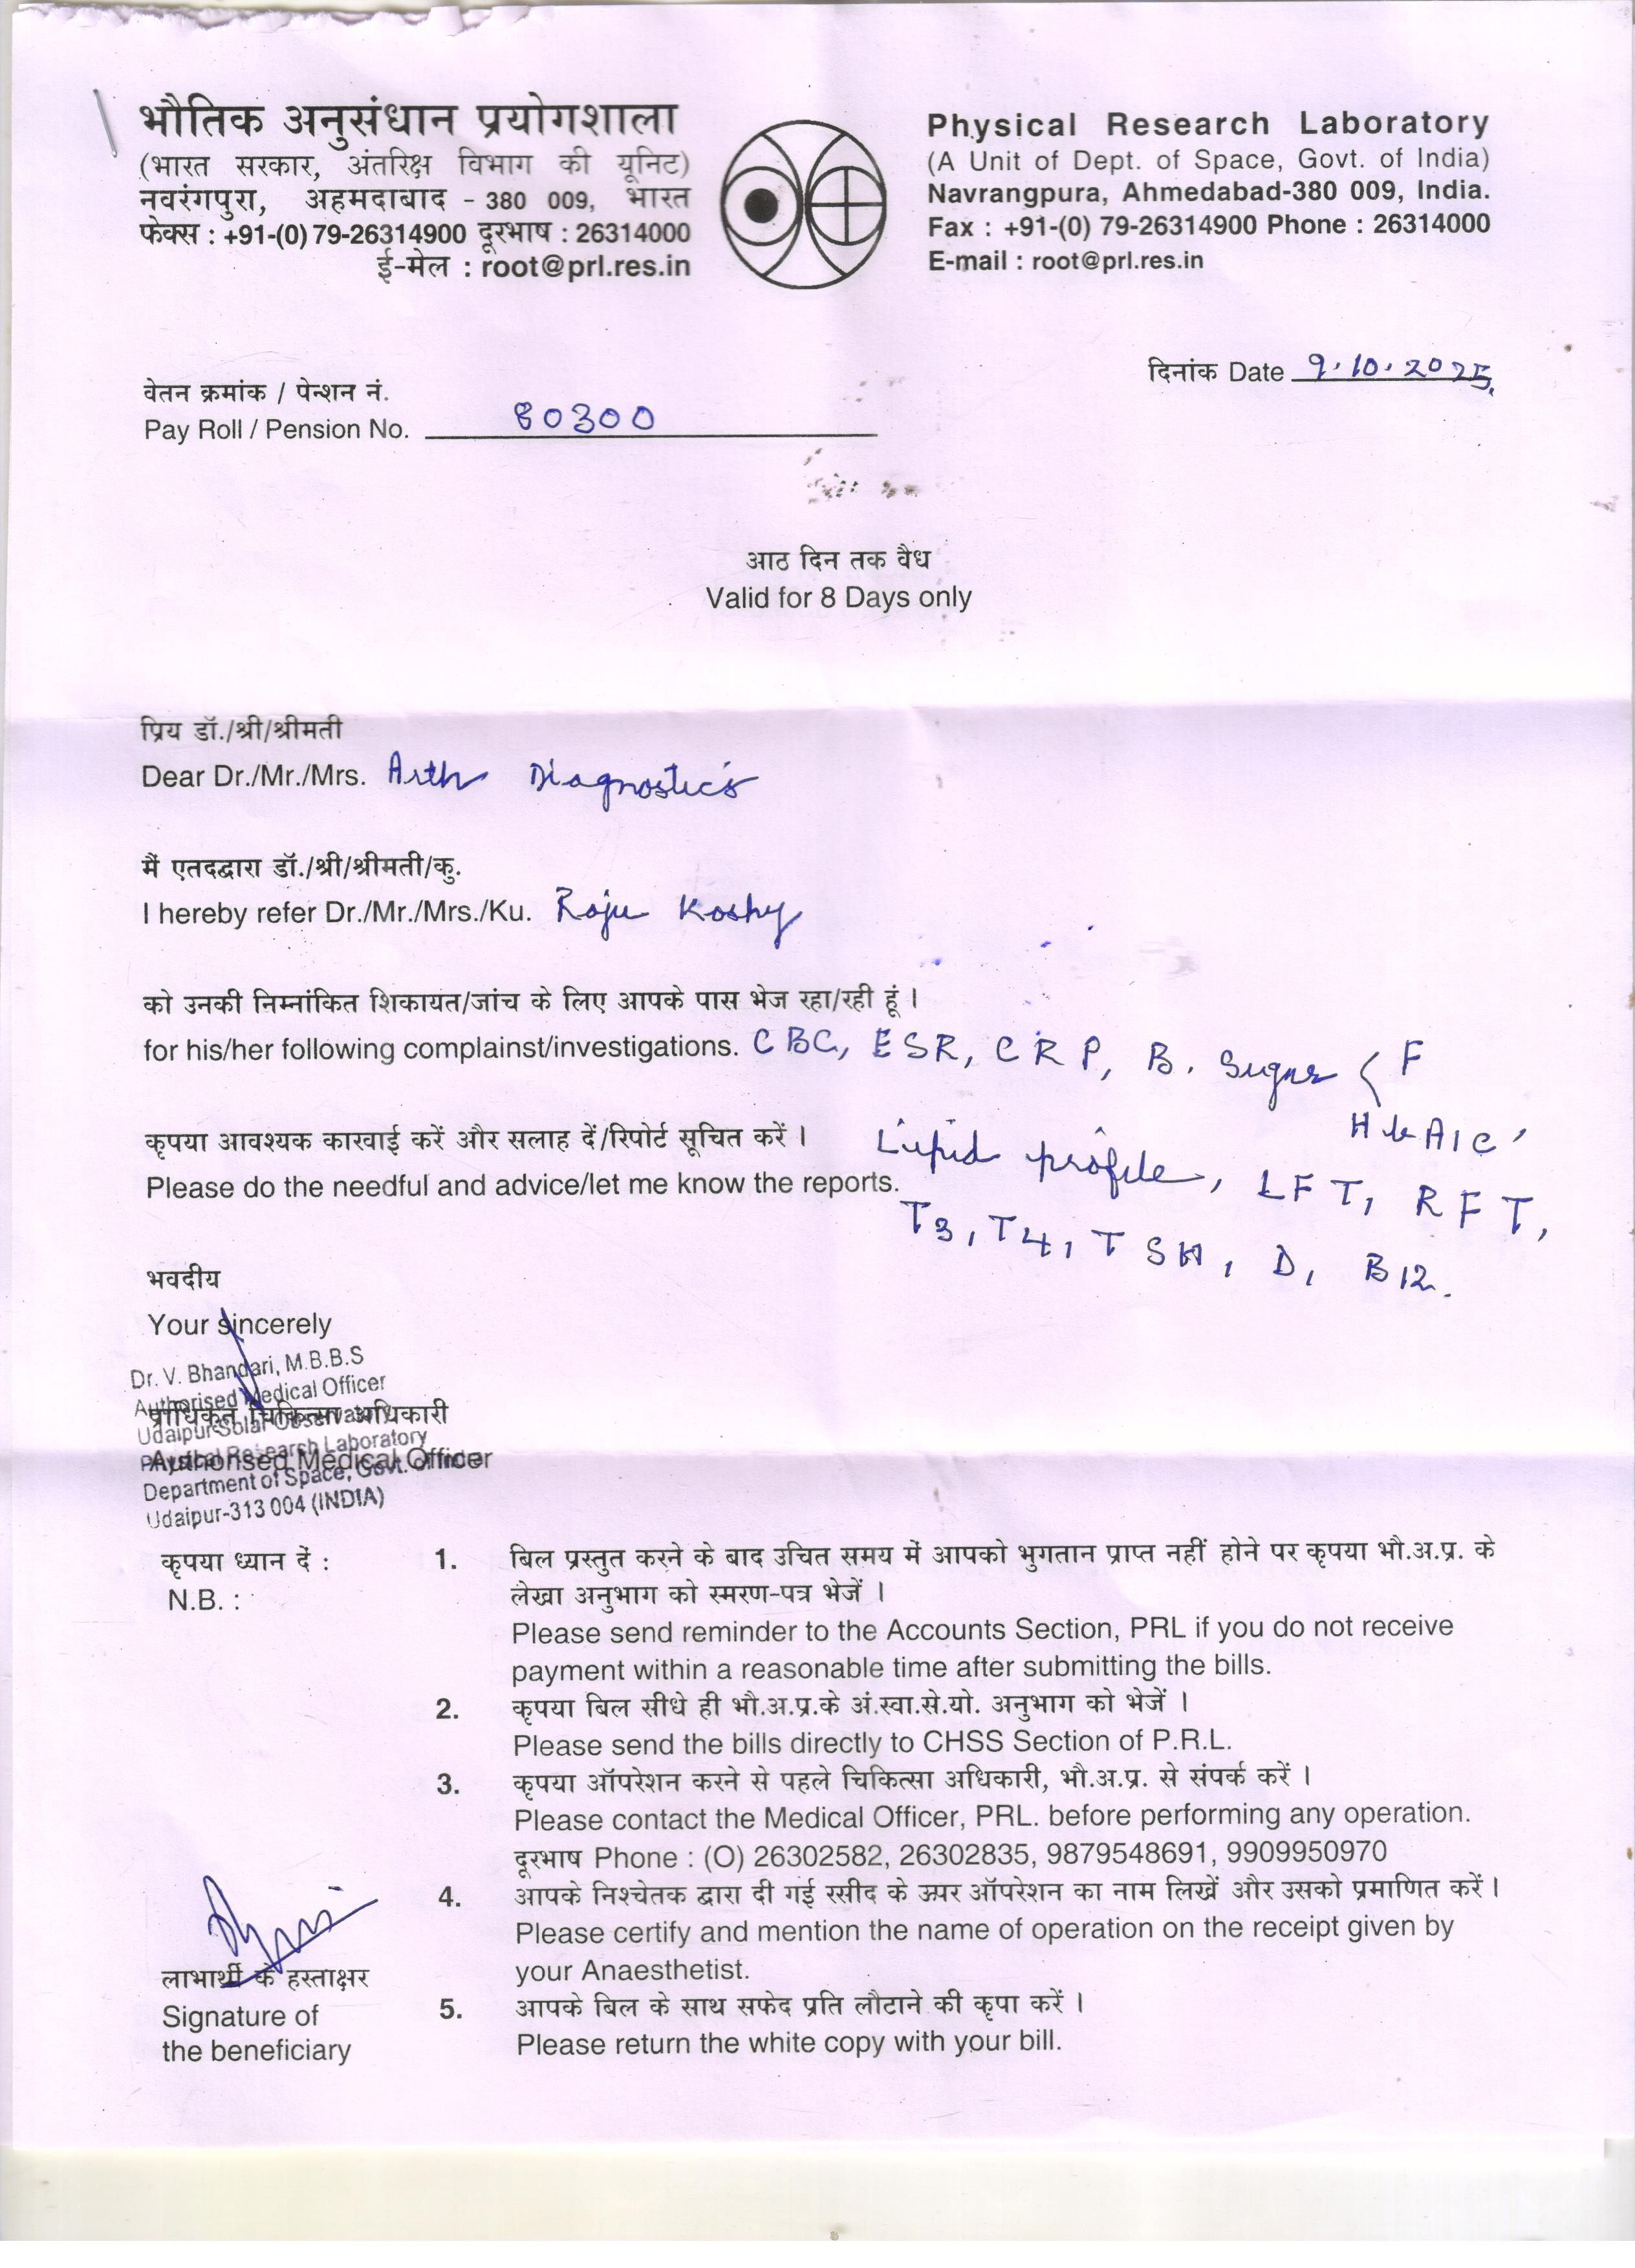 भौतिक अनुसंधान प्रयोगशाला
(भारत सरकार, अंतरिक्ष विभाग की यूनिट)
नवरंगपुरा, अहमदाबाद - 380 009, भारत
फेक्स : +91-(0) 79-26314900 दूरभाष : 26314000
ई-मेल : root@prl.res.in
Physical Research Laboratory
(A Unit of Dept. of Space, Govt. of India)
Navrangpura, Ahmedabad-380 009, India.
Fax : +91-(0) 79-26314900 Phone : 26314000
E-mail : root@prl.res.in
दिनांक Date 9.10.2025.
वेतन क्रमांक / पेन्शन नं.
Pay Roll / Pension No. 80300
आठ दिन तक वैध
Valid for 8 Days only
प्रिय डॉ./श्री/श्रीमती
Dear Dr./Mr./Mrs. Arth Diagnostics
मैं एतदद्वारा डॉ./श्री/श्रीमती/कु.
I hereby refer Dr./Mr./Mrs./Ku. Raju Koshy
को उनकी निम्नांकित शिकायत/जांच के लिए आपके पास भेज रहा/रही हूं ।
for his/her following complainst/investigations. CBC, ESR, CRP, B. Sugar < F
HbA1C,
कृपया आवश्यक कारवाई करें और सलाह दें/रिपोर्ट सूचित करें ।
Lipid profile, LFT, RFT,
Please do the needful and advice/let me know the reports.
T3, T4, TSH, D, B12.
भवदीय
Your sincerely
Dr. V. Bhandari, M.B.B.S
Authorised Medical Officer
प्राधिकृत चिकित्सा अधिकारी
Udaipur Solar Observatory
Physical Research Laboratory
Authorised Medical Officer
Department of Space, Govt. of India
Udaipur-313 004 (INDIA)
कृपया ध्यान दें :
N.B. :
1. बिल प्रस्तुत करने के बाद उचित समय में आपको भुगतान प्राप्त नहीं होने पर कृपया भौ.अ.प्र. के
लेखा अनुभाग को स्मरण-पत्र भेजें ।
Please send reminder to the Accounts Section, PRL if you do not receive
payment within a reasonable time after submitting the bills.
2. कृपया बिल सीधे ही भौ.अ.प्र.के अं.स्वा.से.यो. अनुभाग को भेजें ।
Please send the bills directly to CHSS Section of P.R.L.
3. कृपया ऑपरेशन करने से पहले चिकित्सा अधिकारी, भौ.अ.प्र. से संपर्क करें ।
Please contact the Medical Officer, PRL. before performing any operation.
दूरभाष Phone : (O) 26302582, 26302835, 9879548691, 9909950970
4. आपके निश्चेतक द्वारा दी गई रसीद के ऊपर ऑपरेशन का नाम लिखें और उसको प्रमाणित करें ।
Please certify and mention the name of operation on the receipt given by
your Anaesthetist.
5. आपके बिल के साथ सफेद प्रति लौटाने की कृपा करें ।
Please return the white copy with your bill.
लाभार्थी के हस्ताक्षर
Signature of
the beneficiary